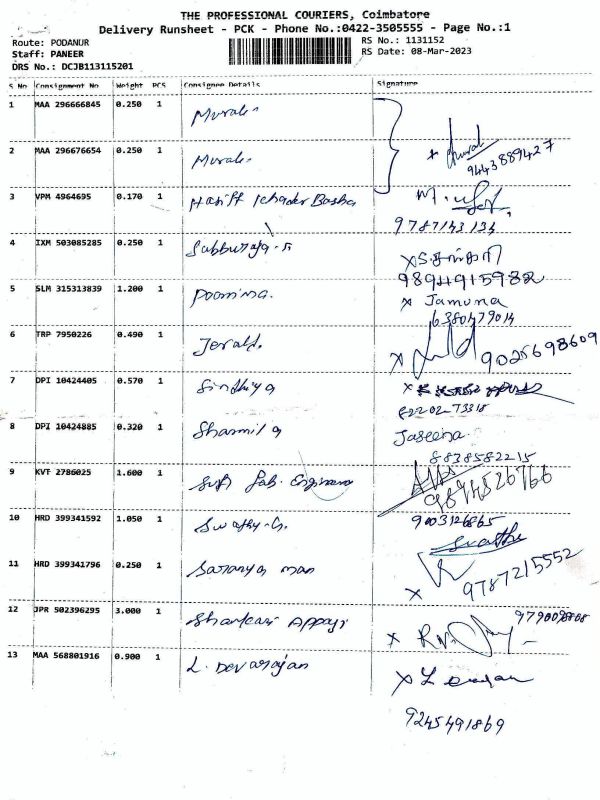 THE PROFESSIONAL COURIERS, Coimbatore
Delivery Runsheet - PCK - Phone No.:0422-3505555 - Page No.:1
Route: PODANUR
Staff: PANEER
DRS No.: DCJB113115201
RS No.: 1131152
RS Date: 08-Mar-2023
S No Consignment No Weight PCS Consignee Details Signature
1 MAA 296666845 0.250 1 Murali
2 MAA 296676654 0.250 1 Murali
9443889427
3 VPM 4964695 0.170 1 Haniff Basha M.
9787143134
4 IXM 503085285 0.250 1 Subburaja
9894915982
5 SLM 315313839 1.200 1 Poornima. x Jamuna
6380479014
6 TRP 7950226 0.490 1 Jerald. x
9025698609
7 DPI 10424405 0.570 1 Sindhiya x
82202-73318
8 DPI 10424885 0.320 1 Sharmila Jaseena
8838582215
9 KVT 2786025 1.600 1 Lab. Engineers
9894526766
10 HRD 399341592 1.050 1 Swathy.G. 9003126865
Swathi
11 HRD 399341796 0.250 1 Saranya man x 9787215552
12 JPR 502396295 3.000 1 Shankari Appaji x
13 MAA 568801916 0.900 1 L. Devarajan x L
9245491869